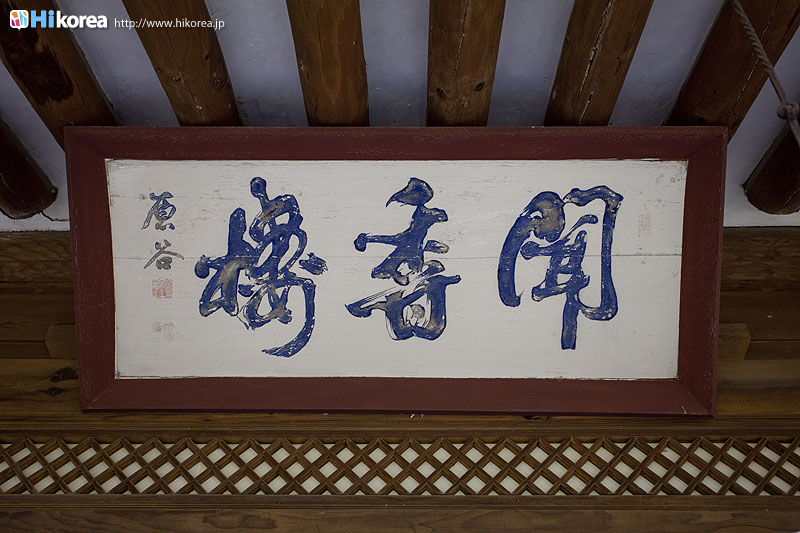 Hikorea http://www.hikorea.jp
聞香樓
原谷